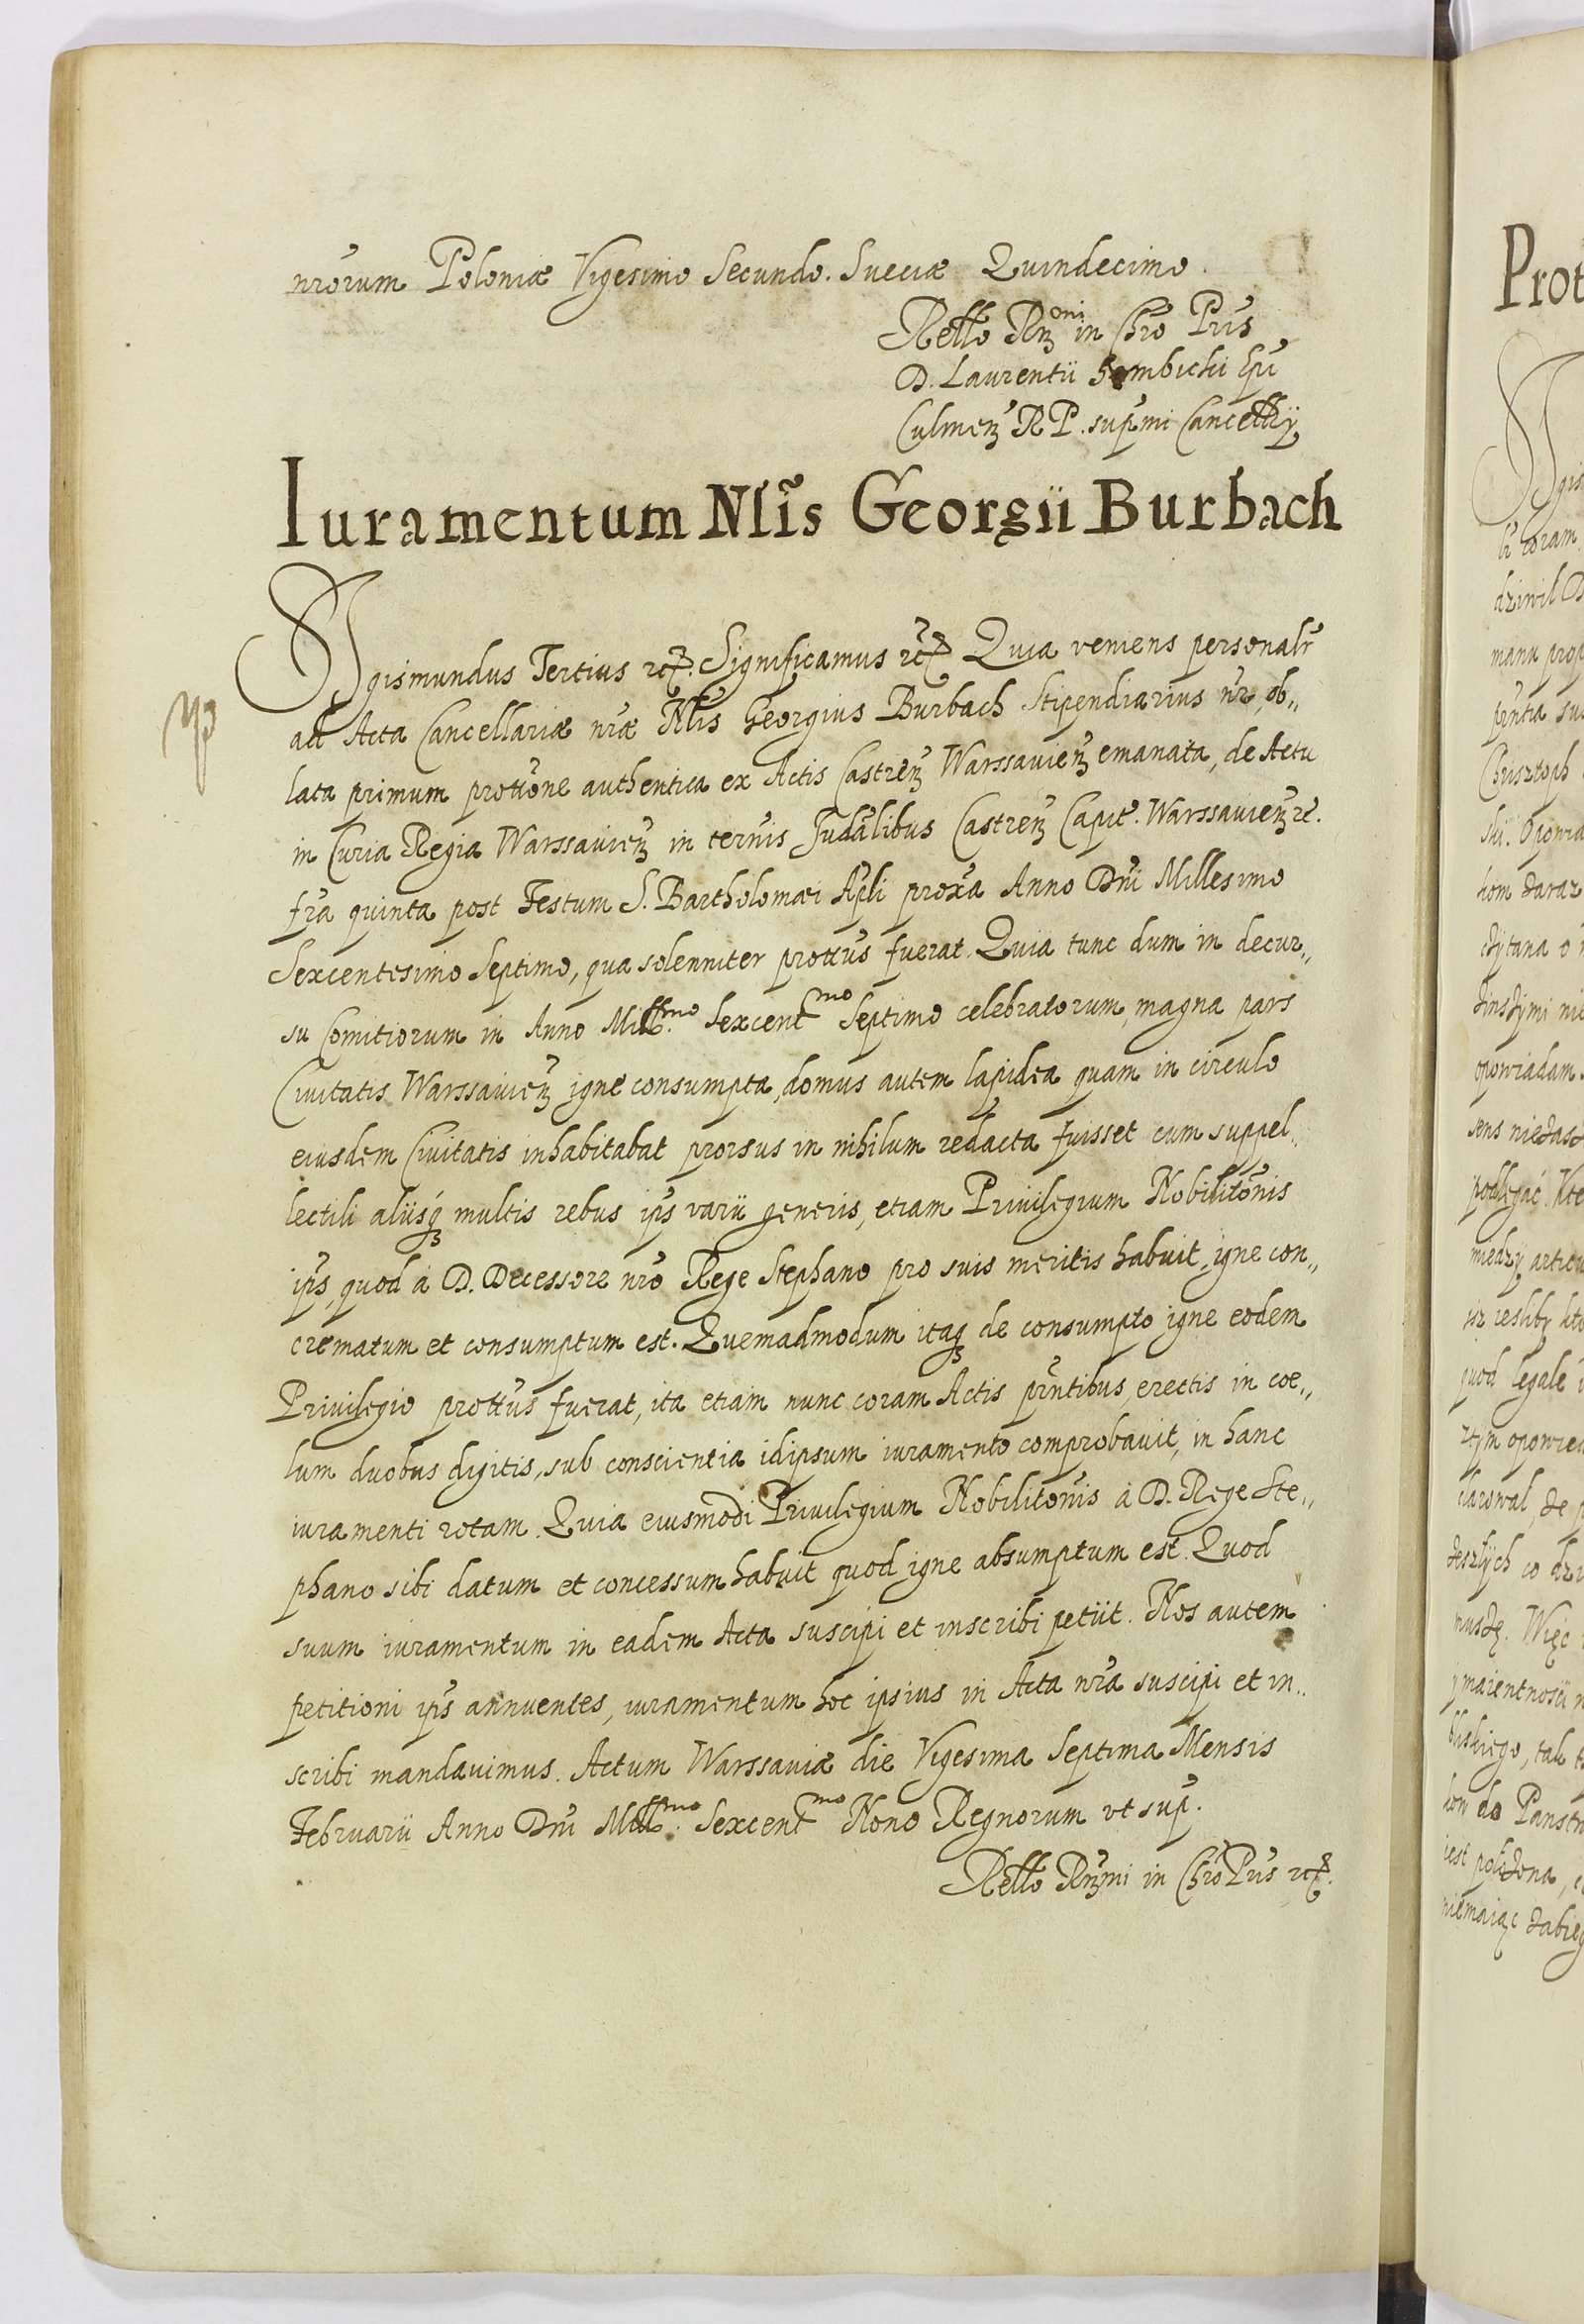 nrorum Poloniæ Vigesimo Secundo. Sueciæ Quindecimo.
Rello Rmi in Chro Pris
D. Laurentii Gembicki Epi
Culmen R P. supmi Cancellrÿ
Iuramentum Nlis Georgii Burbach
Sigismundus Tertius etc. Significamus etc. Quia veniens personalr
ad Acta Cancellariæ nræ Nlis Georgius Burbach Stipendiarius nr, ob„
lata primum prottone authentica ex Actis Castren Warssavien emanata, de Actu
in Curia Regia Warssavien in ternis Iudalibus Castren Capit. Warssavien re.
fra quinta post Festum S. Bartholomæi Apli proxa Anno Dni Millesimo
Sexcentesimo Septimo, qua solenniter prottus fuerat. Quia tunc dum in decur„
su Comitiorum in Anno Millmo. Sexcentmo Septimo celebratorum, magna pars
Civitatis Warssavien igne consumpta, domus autem lapidea quam in circulo
eiusdem Civitatis inhabitabat prorsus in nihilum redacta fuisset cum suppel„
lectili aliisq multis rebus ips varii generis, etiam Privilegium Nobilitonis
ips, quod à D. Decessore nro Rege Stephano pro suis meritis habuit, igne con„
crematum et consumptum est. Quemadmodum itaq de consumpto igne eodem
Privilegio prottus fuerat, ita etiam nunc coram Actis prntibus, erectis in coe„
lum duobus digitis, sub conscientia idipsum iuramento comprobavit, in hanc
iuramenti rotam. Quia eiusmodi Privilegium Nobilitonis à D. Rege Ste„
phano sibi datum et concessum habuit quod igne absumptum est. Quod
suum iuramentum in eadem Acta suscipi et inscribi petiit. Nos autem
petitioni ips annuentes, iuramentum hoc ipsius in Acta nra suscipi et in„
scribi mandavimus. Actum Warssaviæ die Vigesima Septima Mensis
Februarii Anno Dni Millmo. Sexcentmo Nono Regnorum vt sup.
Rello Rmi in Chro Pris etc.
Prot
gis
coram
dziwil
manu prop
pntia
Chrisztoph
ski. Opowia
opowiadam
podlegać
miedzÿ
quod legale
musZę. Więc
ÿ maientnosti
tak
kow do Panstw
iest